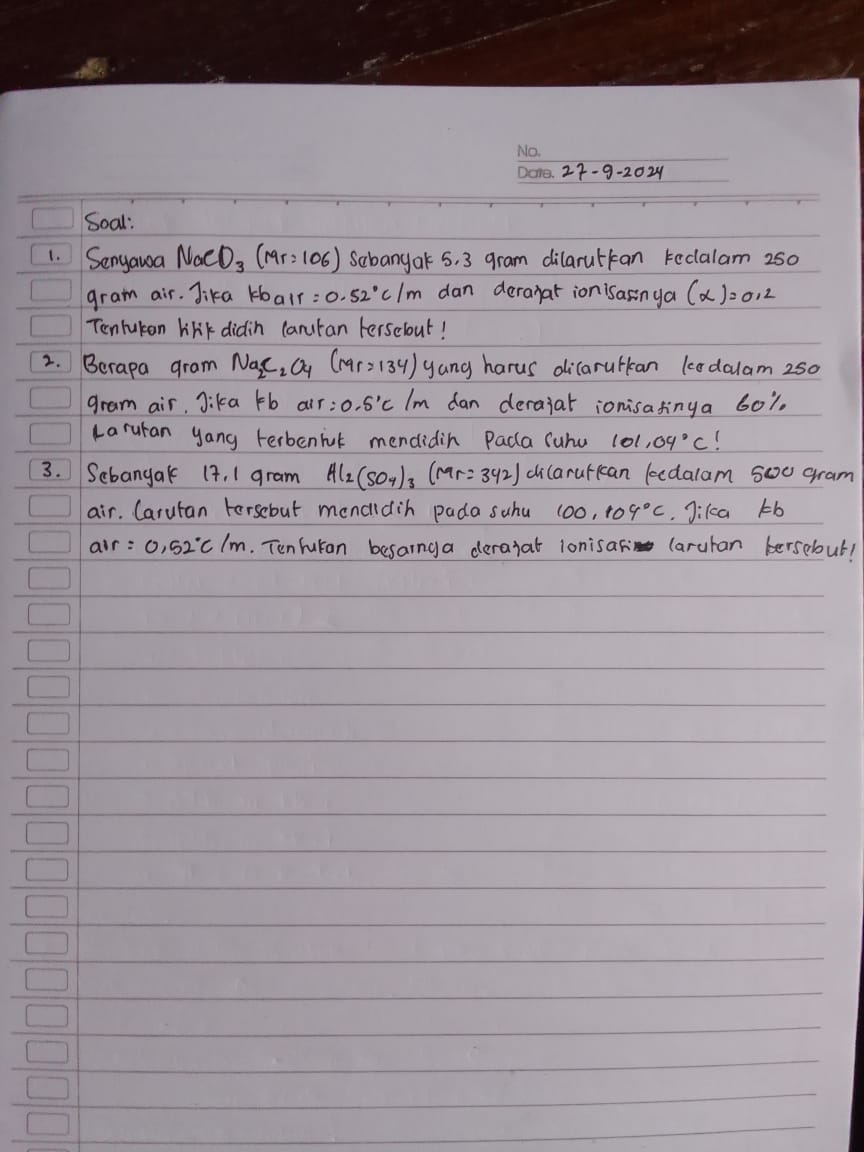 No.
Date. 27-9-2024
Soal:
1. Senyawa NaCO3 (Mr=106) Sebanyak 5,3 gram dilarutkan kedalam 250
gram air. Jika kb air = 0.52°C/m dan derajat ionisasinya (α)=0,2
Tentukan titik didih larutan tersebut!
2. Berapa gram Na2C2O4 (Mr=134) yang harus dilarutkan kedalam 250
gram air. Jika kb air : 0.5°C/m dan derajat ionisasinya 60%
Larutan yang terbentuk mendidih Pada suhu 101,04°C!
3. Sebanyak 17,1 gram Al2(SO4)3 (Mr=342) dilarutkan kedalam 500 gram
air. Larutan tersebut mendidih pada suhu 100,104°C. Jika kb
air = 0,52°C/m. Tentukan besarnya derajat ionisasi larutan tersebut!